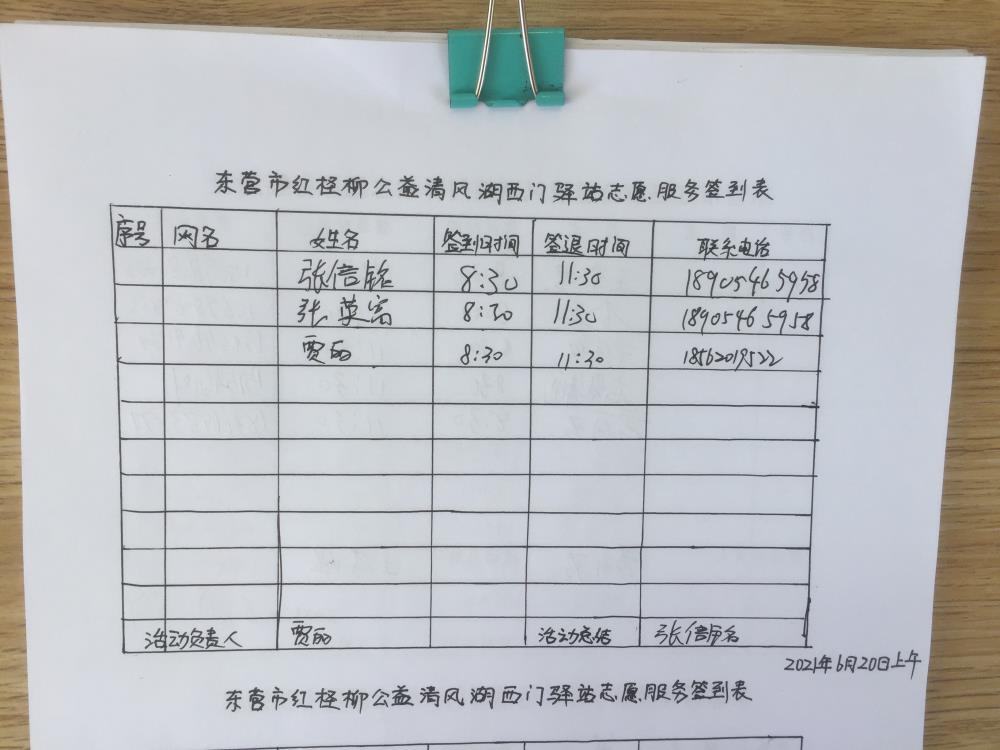 东营市红柽柳公益清风湖西门驿站志愿服务签到表
序号 网名 姓名 签到时间 签退时间 联系电话
张信铭 8:30 11:30 18905465958
张英富 8:30 11:30 18905465958
贾丽 8:30 11:30 18562019522
活动负责人 贾丽 活动总结 张信铭
2021年6月20日上午
东营市红柽柳公益清风湖西门驿站志愿服务签到表